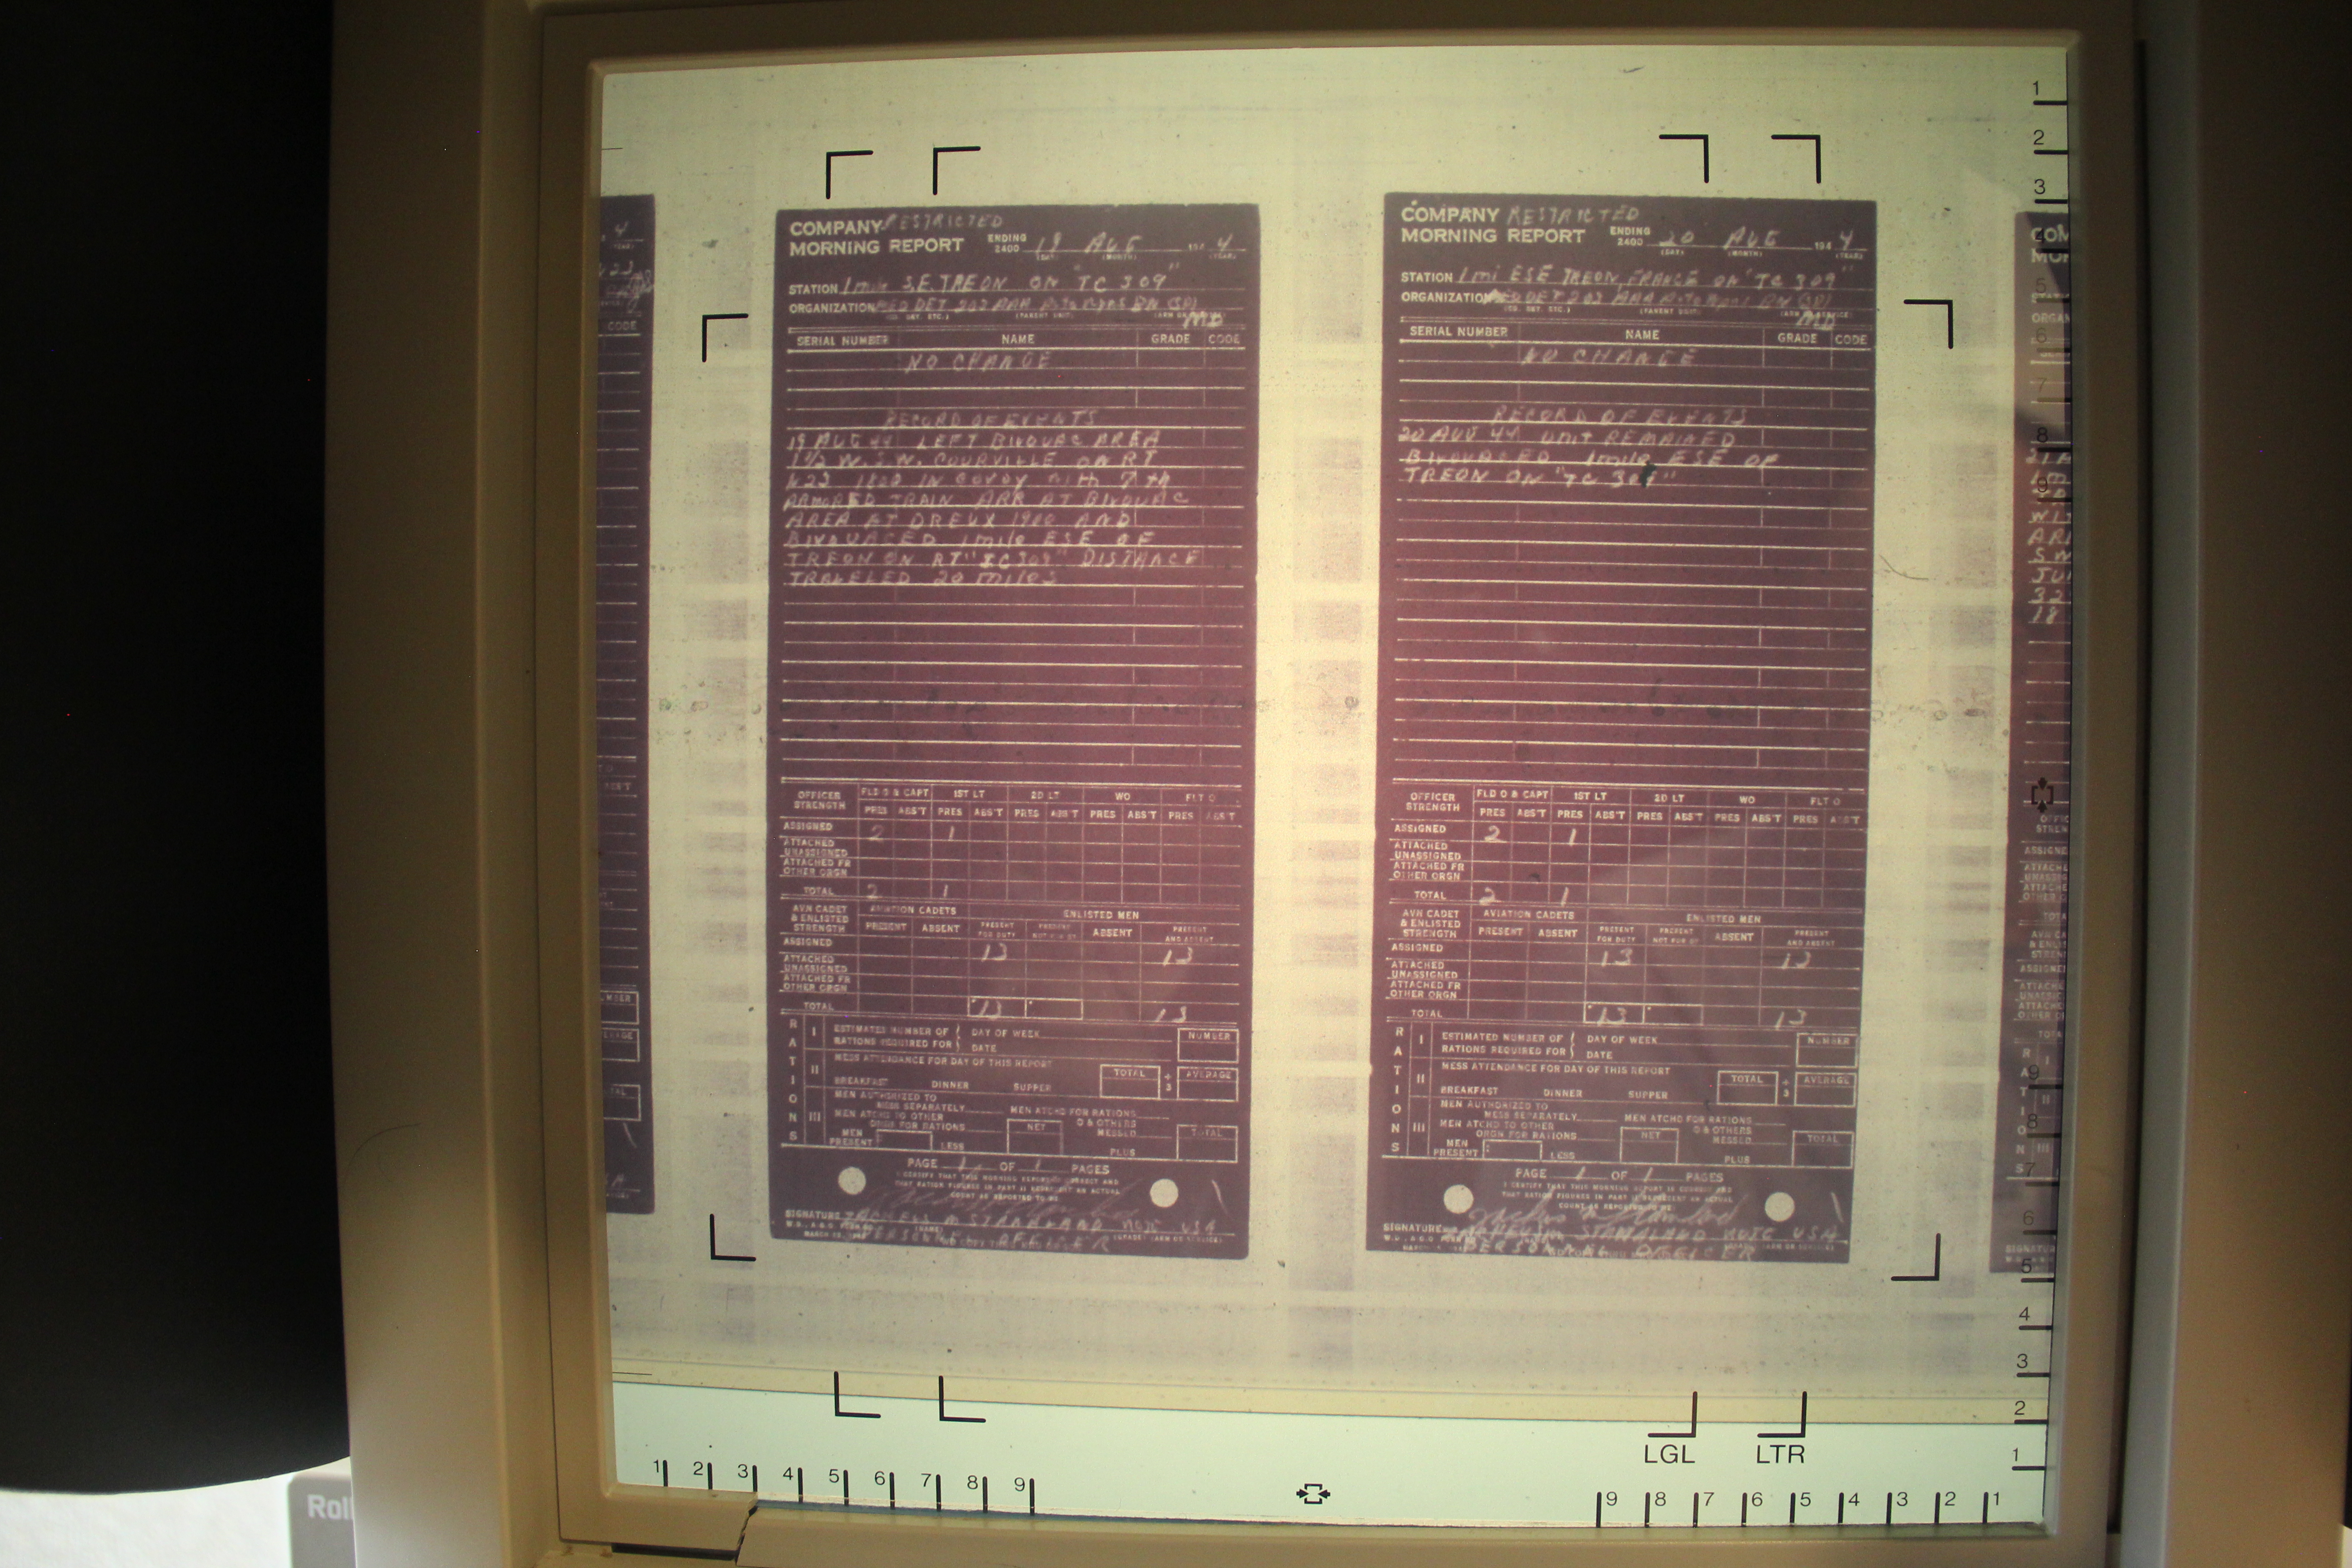 COMPANY RESTRICTED
MORNING REPORT ENDING 2400 19 AUG 194 4
(DAY) (MONTH) (YEAR)
STATION 1 mile S.E. TREON ON "TC 309"
ORGANIZATION MED DET 203 AAA Auto Wpns BN (SP)
MD
SERIAL NUMBER NAME GRADE CODE
NO CHANGE
RECORD OF EVENTS
19 AUG 44 LEFT BIVOUAC AREA
1 1/2 W.S.W. COURVILLE ON RT
N23 1800 IN COVOY with 7th
ARMORED TRAIN ARR AT BIVOUAC
AREA AT DREUX 1900 AND
BIVOUACED 1 mile ESE OF
TREON ON RT "TC 309" DISTANCE
TRAVELED 20 miles
OFFICER STRENGTH FLD O & CAPT 1ST LT 2D LT WO FLT O
PRES ABS'T PRES ABS'T PRES ABS'T PRES ABS'T PRES ABS'T
ASSIGNED 2 1
ATTACHED UNASSIGNED
ATTACHED FR OTHER ORGN
TOTAL 2 1
AVN CADET & ENLISTED STRENGTH AVIATION CADETS ENLISTED MEN
PRESENT ABSENT PRESENT FOR DUTY PRESENT NOT FOR DY ABSENT PRESENT AND ABSENT
ASSIGNED 13 13
ATTACHED UNASSIGNED
ATTACHED FR OTHER ORGN
TOTAL 13 13
RATIONS
I ESTIMATED NUMBER OF RATIONS REQUIRED FOR DAY OF WEEK DATE NUMBER
II MESS ATTENDANCE FOR DAY OF THIS REPORT
BREAKFAST DINNER SUPPER TOTAL ÷ 3 AVERAGE
III MEN AUTHORIZED TO MESS SEPARATELY MEN ATCHD FOR RATIONS
MEN ATCHD TO OTHER ORGN FOR RATIONS NET O & OTHERS MESSED TOTAL
MEN PRESENT LESS PLUS
PAGE 1 OF 1 PAGES
I CERTIFY THAT THIS MORNING REPORT IS CORRECT AND
THAT RATION FIGURES IN PART II REPRESENT AN ACTUAL
COUNT AS REPORTED TO ME
SIGNATURE WOJG USA
PERSONNEL OFFICER
COMPANY RESTRICTED
MORNING REPORT ENDING 2400 20 AUG 194 4
(DAY) (MONTH) (YEAR)
STATION 1 mi ESE TREON, FRANCE ON "TC 309"
ORGANIZATION MED DET 203 AAA Auto Wpns BN (SP)
MD
SERIAL NUMBER NAME GRADE CODE
NO CHANGE
RECORD OF EVENTS
20 AUG 44 unit REMAINED
BIVOUACED 1 mile ESE OF
TREON ON "TC 309"
OFFICER STRENGTH FLD O & CAPT 1ST LT 2D LT WO FLT O
PRES ABS'T PRES ABS'T PRES ABS'T PRES ABS'T PRES ABS'T
ASSIGNED 2 1
ATTACHED UNASSIGNED
ATTACHED FR OTHER ORGN
TOTAL 2 1
AVN CADET & ENLISTED STRENGTH AVIATION CADETS ENLISTED MEN
PRESENT ABSENT PRESENT FOR DUTY PRESENT NOT FOR DY ABSENT PRESENT AND ABSENT
ASSIGNED 13 13
ATTACHED UNASSIGNED
ATTACHED FR OTHER ORGN
TOTAL 13 13
RATIONS
I ESTIMATED NUMBER OF RATIONS REQUIRED FOR DAY OF WEEK DATE NUMBER
II MESS ATTENDANCE FOR DAY OF THIS REPORT
BREAKFAST DINNER SUPPER TOTAL ÷ 3 AVERAGE
III MEN AUTHORIZED TO MESS SEPARATELY MEN ATCHD FOR RATIONS
MEN ATCHD TO OTHER ORGN FOR RATIONS NET O & OTHERS MESSED TOTAL
MEN PRESENT LESS PLUS
PAGE 1 OF 1 PAGES
I CERTIFY THAT THIS MORNING REPORT IS CORRECT AND
THAT RATION FIGURES IN PART II REPRESENT AN ACTUAL
COUNT AS REPORTED TO ME
SIGNATURE WOJG USA
PERSONNEL OFFICER
1 2 3 4 5 6 7 8 9
9 8 7 6 5 4 3 2 1
LGL LTR
Roll